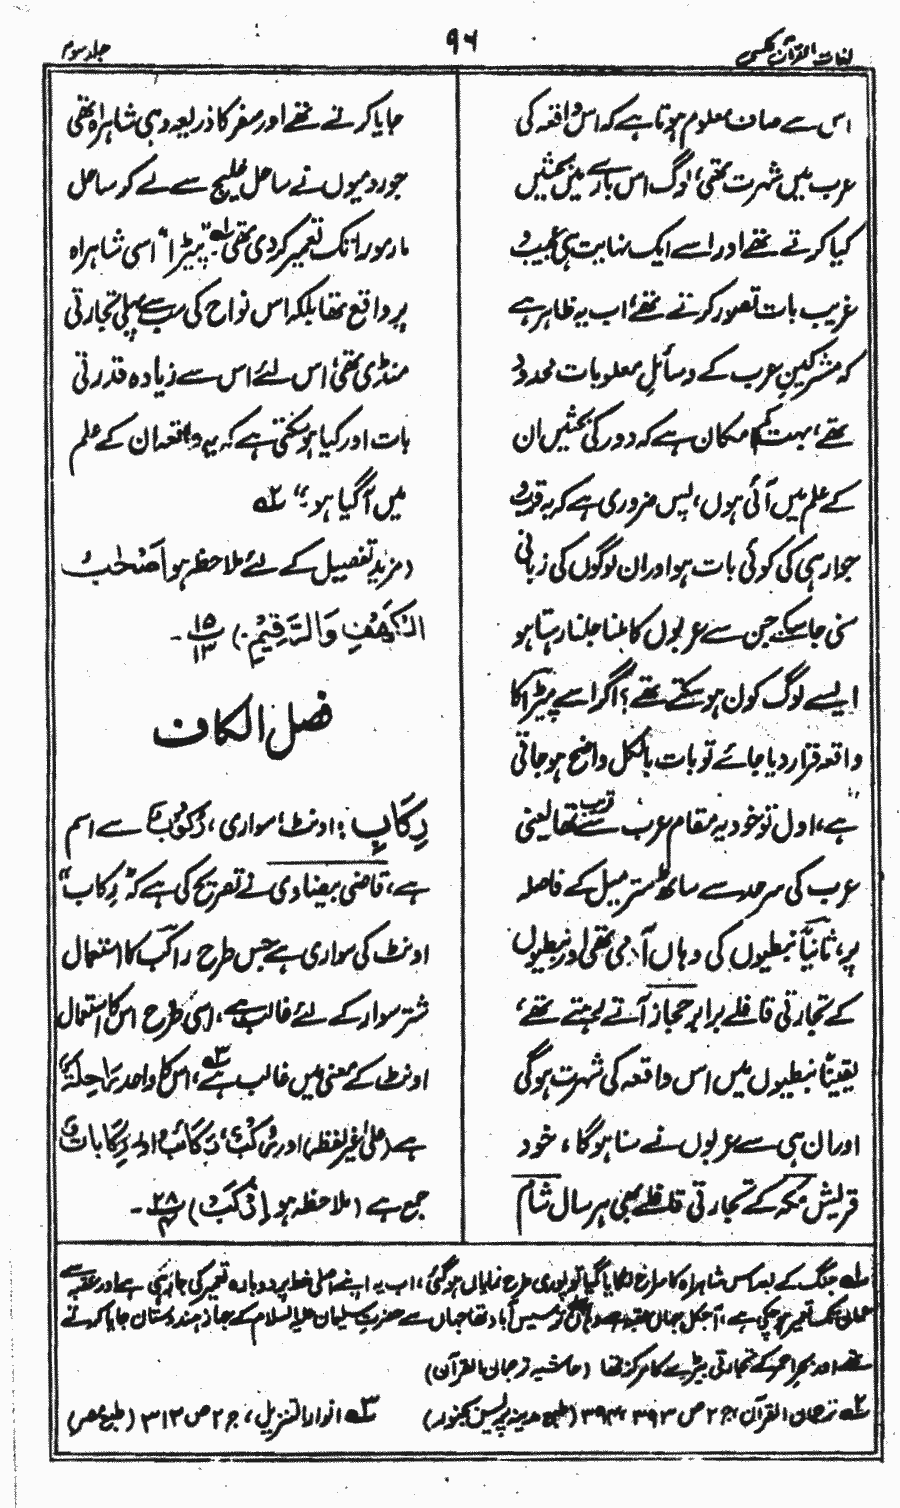 لغات القرآن عکسی
۹۶
جلد سوم
اس سے صاف معلوم ہوتا ہے کہ اس واقعہ کی
عرب میں شہرت تھی، لوگ اس بارے میں بحثیں
کیا کرتے تھے اور اسے ایک نہایت ہی عجیب و
غریب بات تصور کرتے تھے، اب یہ ظاہر ہے
کہ مشرکینِ عرب کے وسائلِ معلومات محدود
تھے، بہت کم امکان ہے کہ دور کی بحثیں ان
کے علم میں آئی ہوں، پس ضروری ہے کہ یہ قرب و
جوار ہی کی کوئی بات ہو اور ان لوگوں کی زبانی
سنی جا سکے جن سے عربوں کا ملنا جلنا رہتا ہو
ایسے لوگ کون ہو سکتے تھے؟ اگر اسے پیٹرا کا
واقعہ قرار دیا جائے تو بات بالکل واضح ہو جاتی
ہے، اول تو خود یہ مقام عرب سے قریب تھا یعنی
عرب کی سرحد سے ساٹھ ستر میل کے فاصلہ
پر، ثانیاً نبطیوں کی وہاں آبادی تھی اور نبطیوں
کے تجارتی قافلے برابر حجاز آتے رہتے تھے،
یقیناً نبطیوں میں اس واقعہ کی شہرت ہوگی
اور ان ہی سے عربوں نے سنا ہوگا، خود
قریش مکہ کے تجارتی قافلے بھی ہر سال شام
جایا کرتے تھے اور سفر کا ذریعہ وہی شاہراہ تھی
جو رومیوں نے ساحل خلیج سے لے کر ساحل
مارمورا تک تعمیر کردی تھی۱ "پیٹرا" اسی شاہراہ
پر واقع تھا بلکہ اس نواح کی سب سے پہلی تجارتی
منڈی تھی، اس لئے اس سے زیادہ قدرتی
بات اور کیا ہو سکتی ہے کہ یہ واقعہ ان کے علم
میں آگیا ہو" ۲
(مزید تفصیل کے لئے ملاحظہ ہو اَصْحٰبُ
الْكَهْفِ وَالرَّقِيْمِ) ۱۵/۱۳۔
فصل الکاف
رِکَابٍ: اونٹ، سواری، رُکُوْبٌ سے اسم
ہے، قاضی بیضاوی نے تصریح کی ہے کہ "رِکَاب"
اونٹ کی سواری ہے جس طرح راکب کا استعمال
شتر سوار کے لئے غالب ہے، اسی طرح اس کا استعمال
اونٹ کے معنی میں غالب ہے۳، اس کا واحد رَاحِلَةٌ
ہے (علیٰ غیر لفظہ) اور رُکُبٌ، رَکَائِبُ اور رِکَابات
جمع ہے (ملاحظہ ہو اِرْکَبْ) ۲۸/۴۔
۱ جنگ کے بعد اس شاہراہ کا سراغ لگایا گیا تو پوری طرح نمایاں ہوگئی، اب یہ اپنے اصلی خط پر دوبارہ تعمیر کی جا رہی ہے اور عقبہ سے
عمان تک تعمیر ہو چکی ہے، آجکل جہاں عقبہ ہے وہاں آباد تھا جہاں سے حضرت سلیمان علیہ السلام کے جہاز ہندوستان جایا کرتے
تھے اور بحر احمر کے تجارتی بیڑے کا مرکز تھا (حاشیہ ترجمان القرآن)
۲ ترجمان القرآن، ج ۲ ص ۳۹۳ (طبع مدینہ پریس بجنور)
۳ انوار التنزیل، ج ۲ ص ۳۱۳ (طبع مصر)